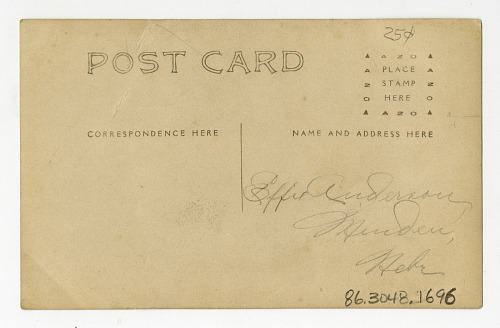 25¢
POST CARD
▲ A Z O ▲
A PLACE A
Z STAMP Z
O HERE O
▲ A Z O ▲
CORRESPONDENCE HERE
NAME AND ADDRESS HERE
Effie Anderson,
Minden,
Nebr
86.3048.1696